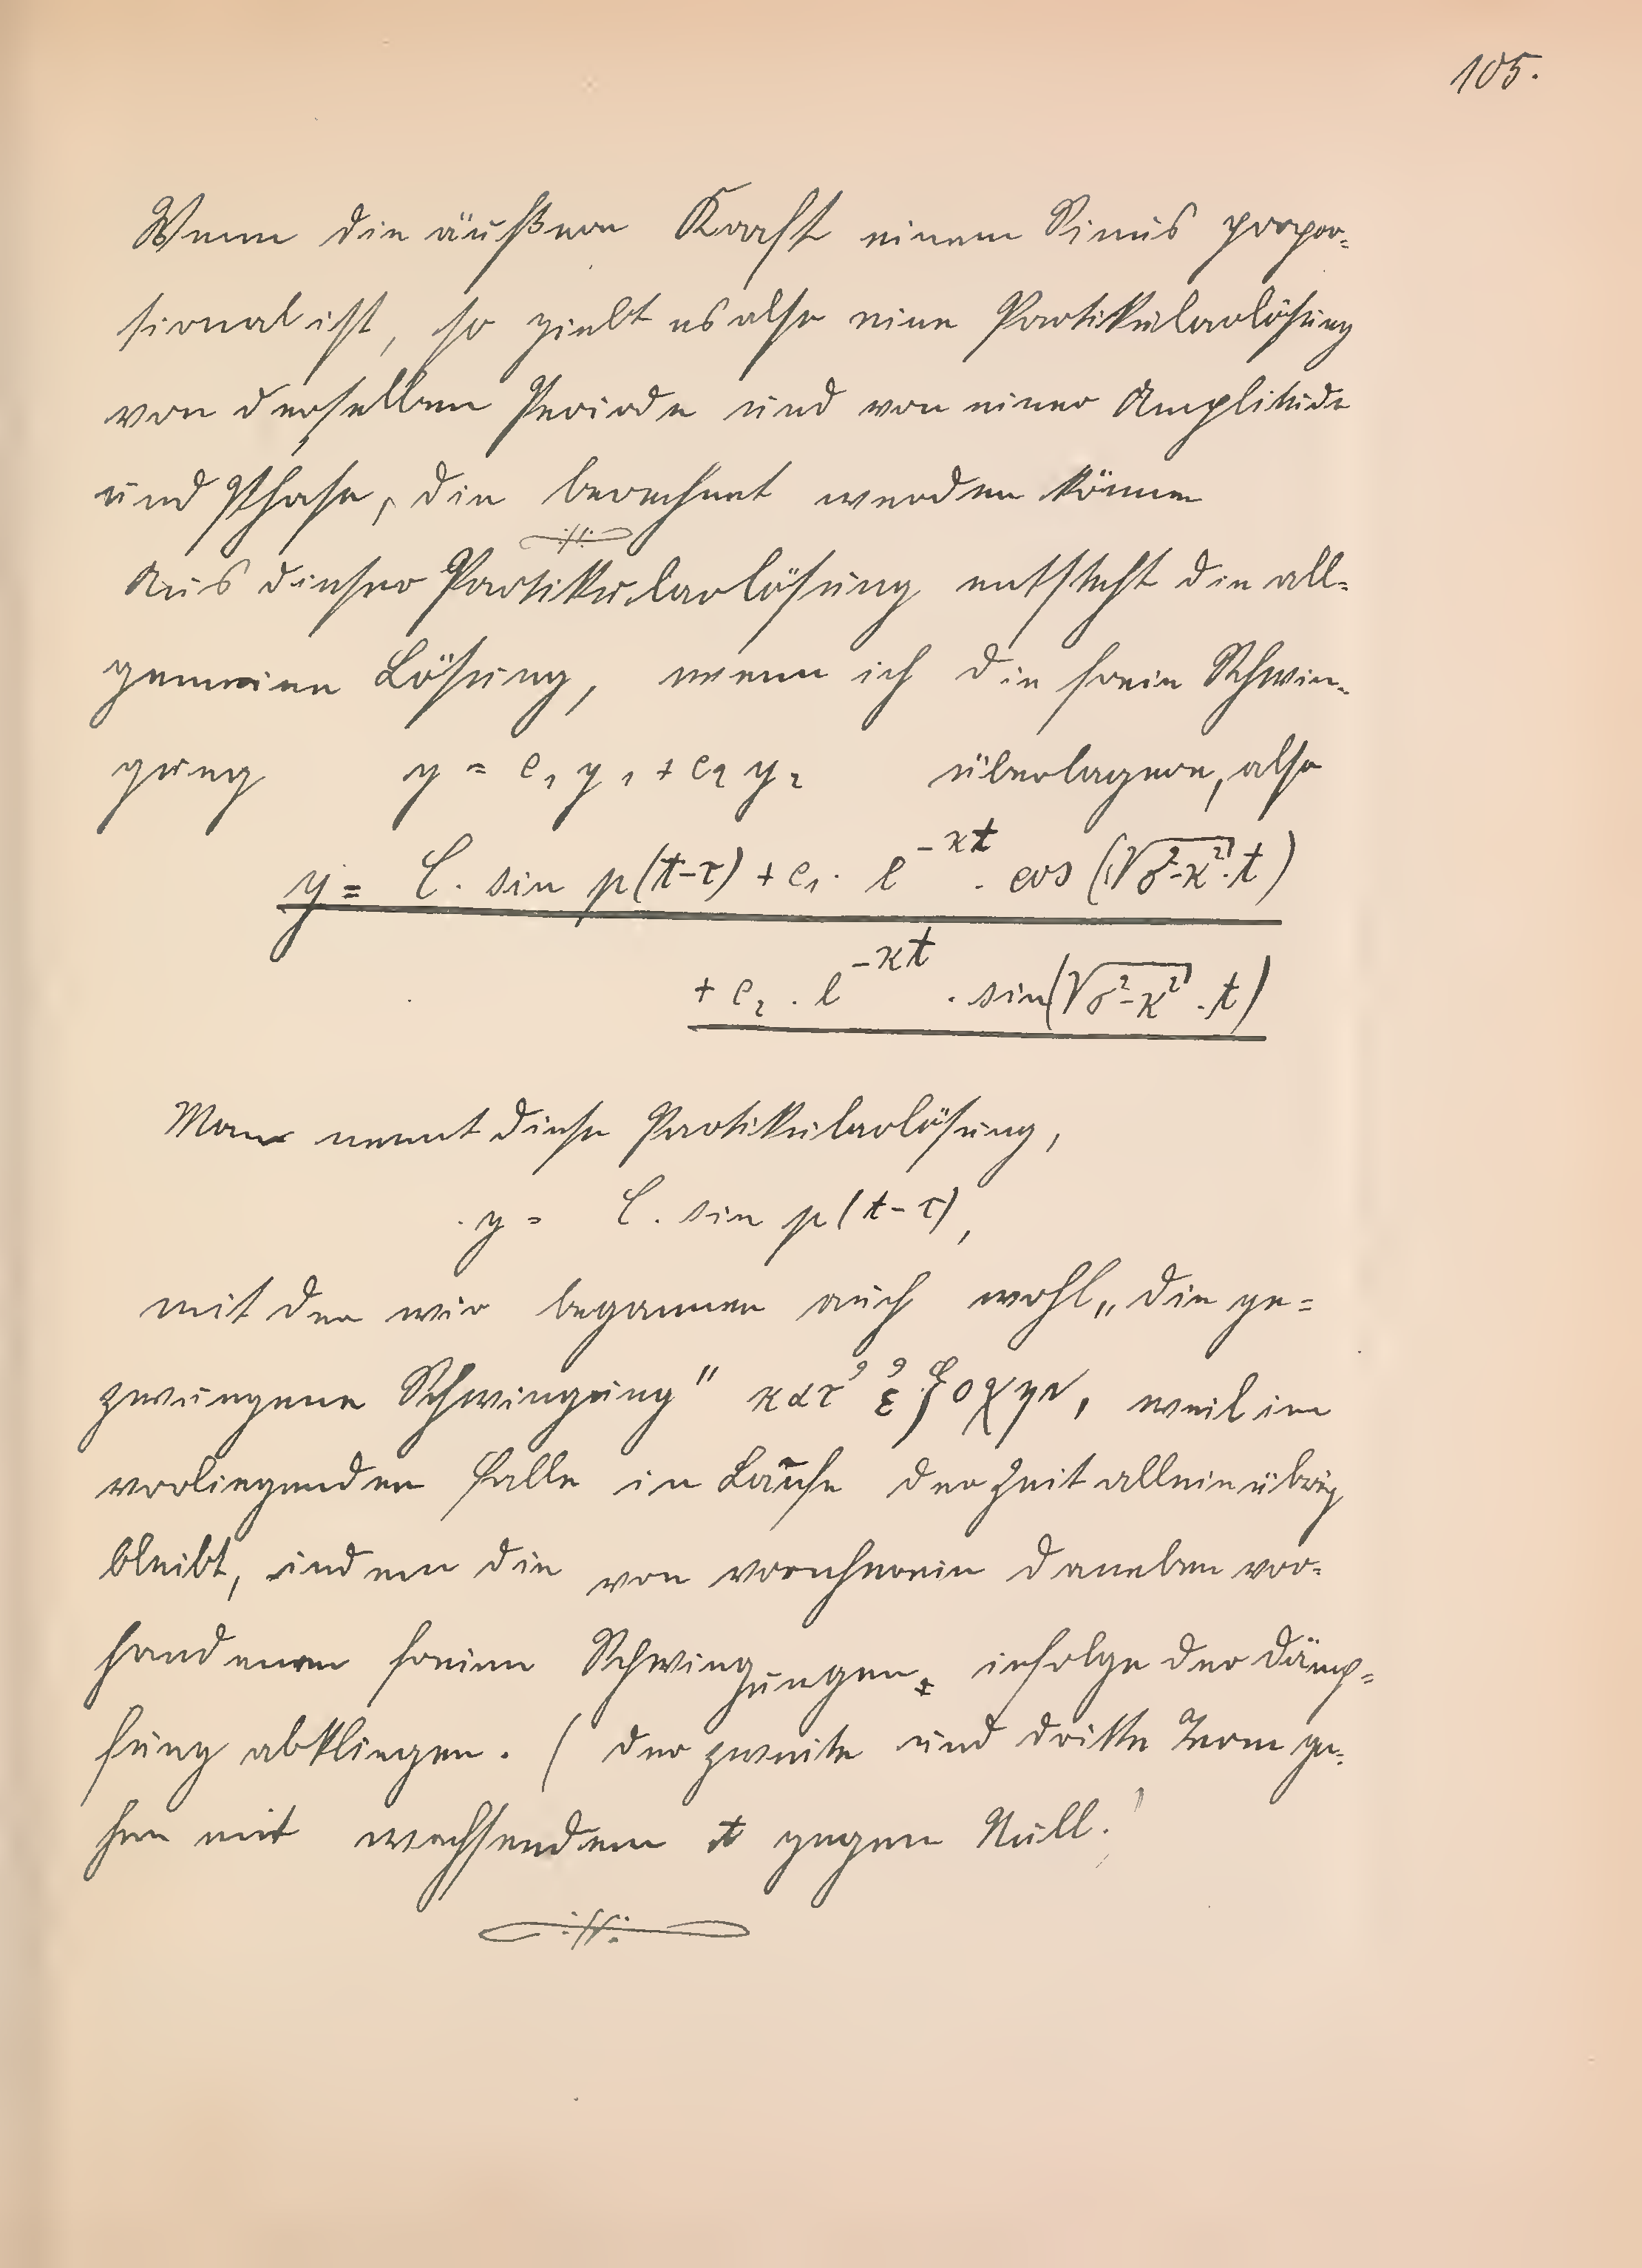 105.
Wenn die äußere Kraft einem Sinus propor=
tional ist, so giebt es also eine Partikularlösung
von derselben Periode und von einer Amplitude
und Phase, die berechnet werden können
Aus dieser Partikularlösung entsteht die all=
gemeine Lösung, wenn ich die freie Schwin=
gung y = c₁ y₁ + c₂ y₂ überlagere, also
y = C. sin p(t-τ) + c₁. e^{-κt} . cos (√σ²-κ² . t)
+ c₂ . e^{-κt} . sin(√σ²-κ² . t)
Man nennt diese Partikularlösung,
y = C. sin p(t-τ),
mit der wir begannen auch wohl „die ge=
zwungene Schwingung" κατ' ἐξοχήν, weil im
vorliegenden Falle im Laufe der Zeit allein übrig
bleibt, indem die von vornherein daneben vor=
handenen freien Schwingungen infolge der Dämp=
fung abklingen. (der zweite und dritte Term ge=
hen mit wachsendem t gegen Null.)